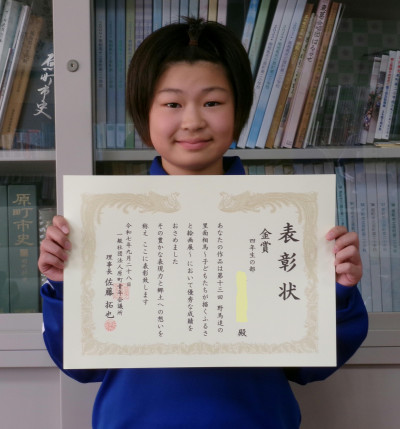 表彰状
金賞
四年生の部
殿
あなたの作品は第十三回 野馬追の
里南相馬～子どもたちが描くふるさ
と絵画展～において優秀な成績を
おさめました
その豊かな表現力と郷土への想いを
称え ここに表彰致します
令和七年九月二十八日
一般社団法人原町青年会議所
理事長 佐藤 拓也
原町市史
原町市史